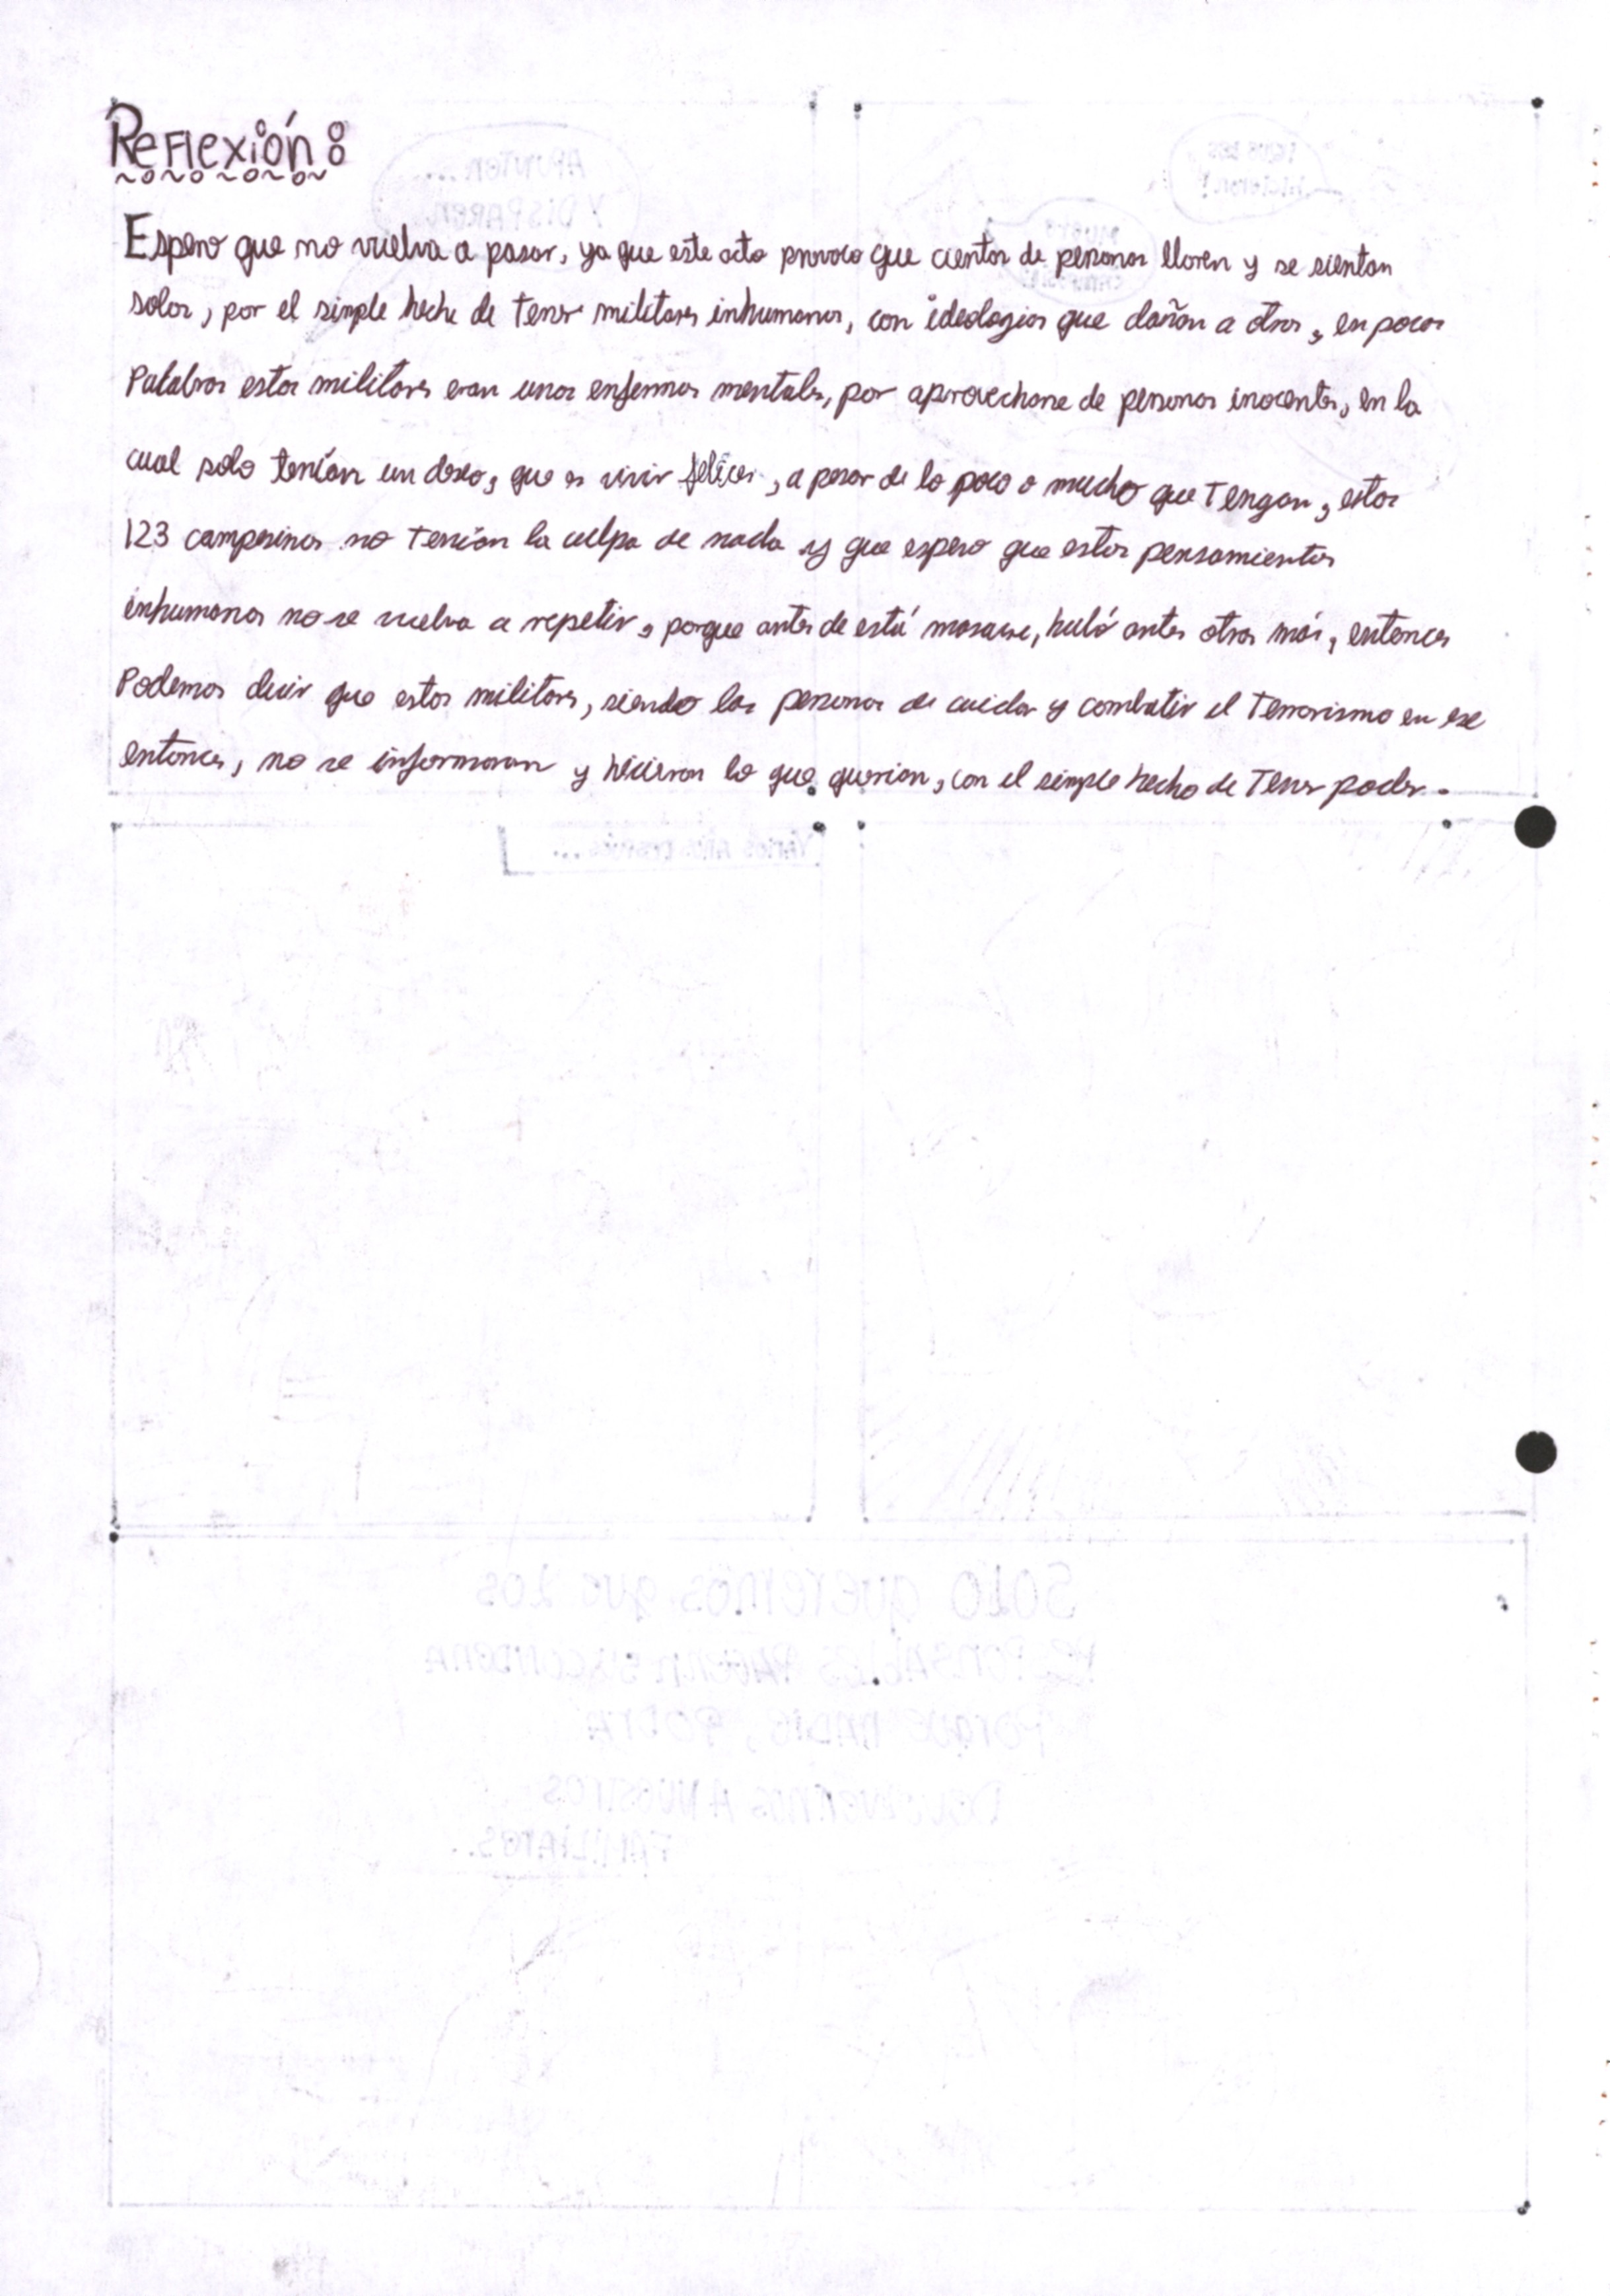 Reflexión:
Espero que no vuelva a pasar, ya que este acto provoco que cientos de personas lloren y se sientan
solos, por el simple hecho de tener militares inhumanos, con ideologias que dañan a otros, en pocas
Palabras estos militares eran unos enfermos mentales, por aprovecharse de personas inocentes, en la
cual solo tenían un deseo, que es vivir felices, a pesar de lo poco o mucho que tengan, estos
123 campesinos no tenían la culpa de nada y que espero que estos pensamientos
inhumanos no se vuelva a repetir, porque antes de está masacre, hubó antes otras más, entonces
Podemos decir que estos militares, siendo las personas de cuidar y combatir el terrorismo en ese
entonces, no se informaron y hicieron lo que querian, con el simple hecho de tener poder.
APUNTEN...
Y DISPAREN
Varios años después...
Solo queremos que los
responsables paguen su condena
Porque nadie, podra
Devolvernos a nuestros
Familiares.